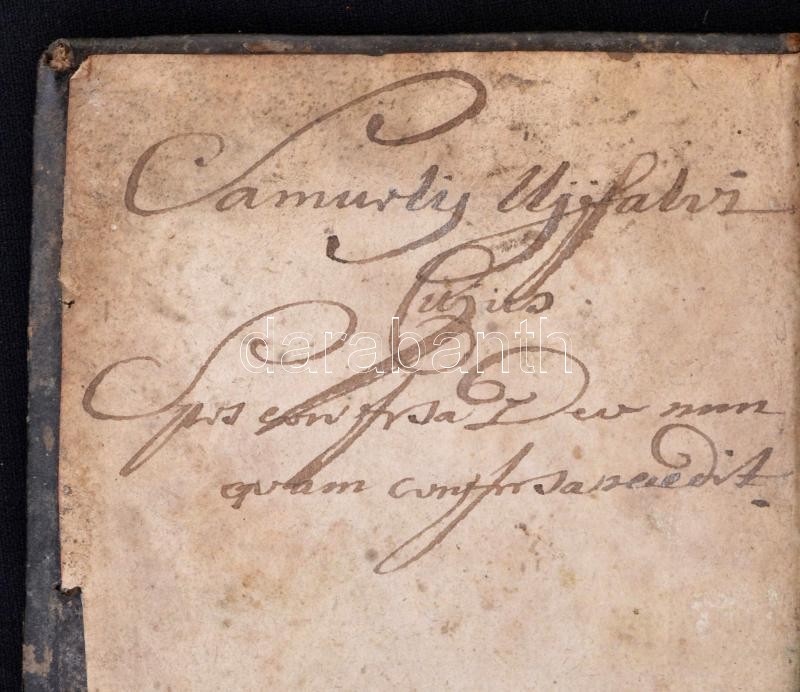 Samuelis Ujfalvi
Cujus
Spes confersa Deo nun
quam confersa recedit
darabanth